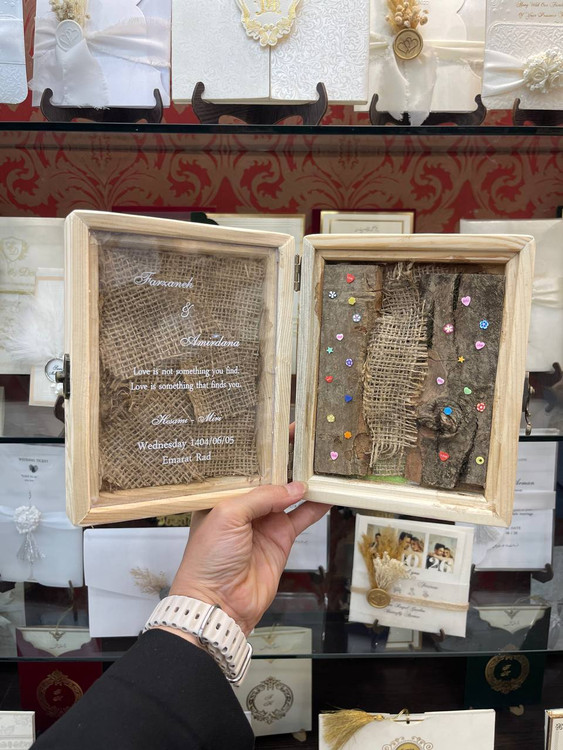 Farzaneh
&
Amirdana
Love is not something you find.
Love is something that finds you.
Hosami - Miri
Wednesday 1404/06/05
Emarat Rad